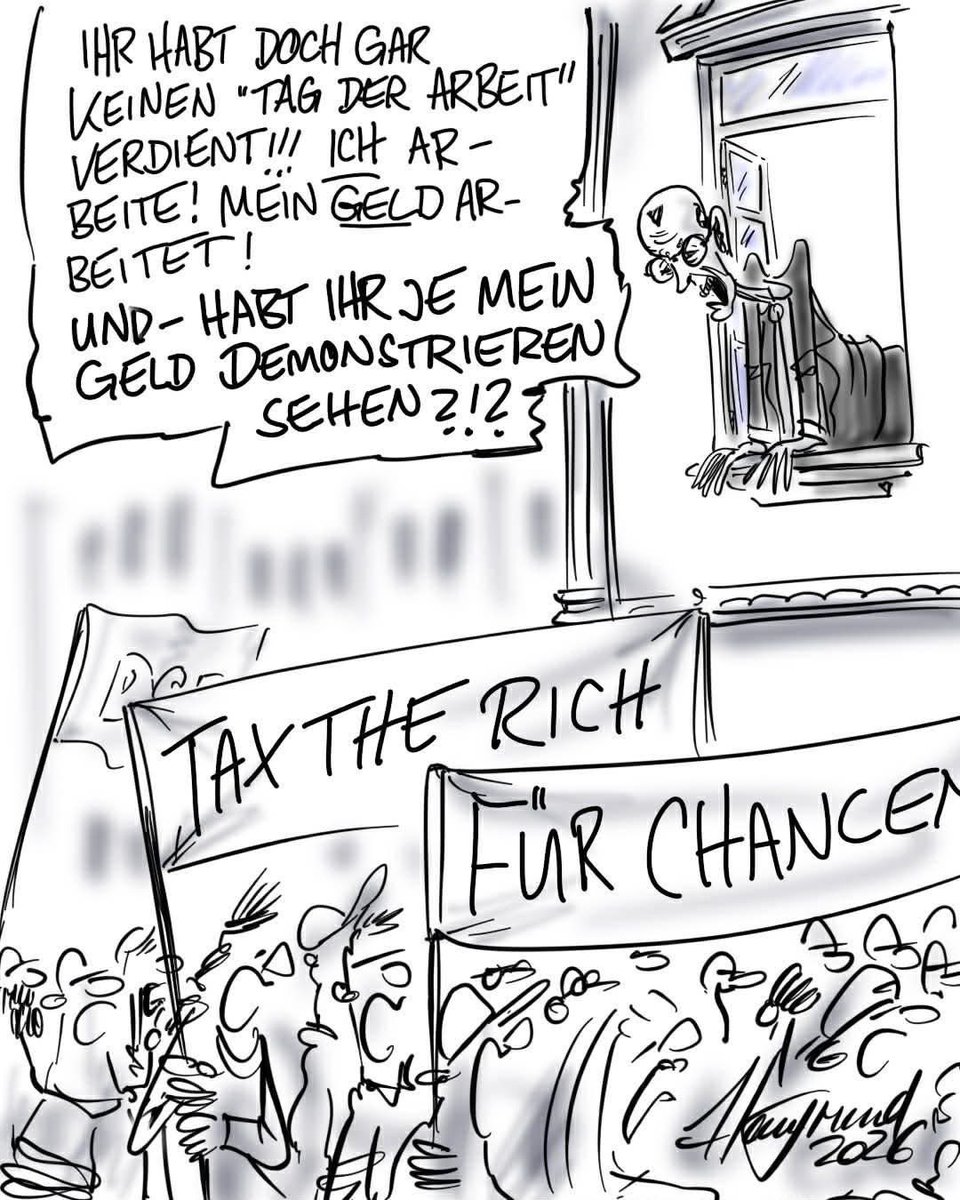 IHR HABT DOCH GAR
KEINEN "TAG DER ARBEIT"
VERDIENT!!! ICH AR-
BEITE! MEIN GELD AR-
BEITET!
UND- HABT IHR JE MEIN
GELD DEMONSTRIEREN
SEHEN?!?
TAX THE RICH
FÜR CHANCEN
2026